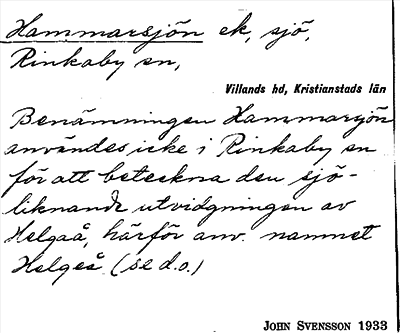 Hammarsjön ek, sjö,
Rinkaby sn,
Villands hd, Kristianstads län
Benämningen Hammarsjön
användes icke i Rinkaby sn
för att beteckna den sjö-
liknande utvidgningen av
Helgeå, härför anv. namnet
Helgeå (se d.o.)
JOHN SVENSSON 1933